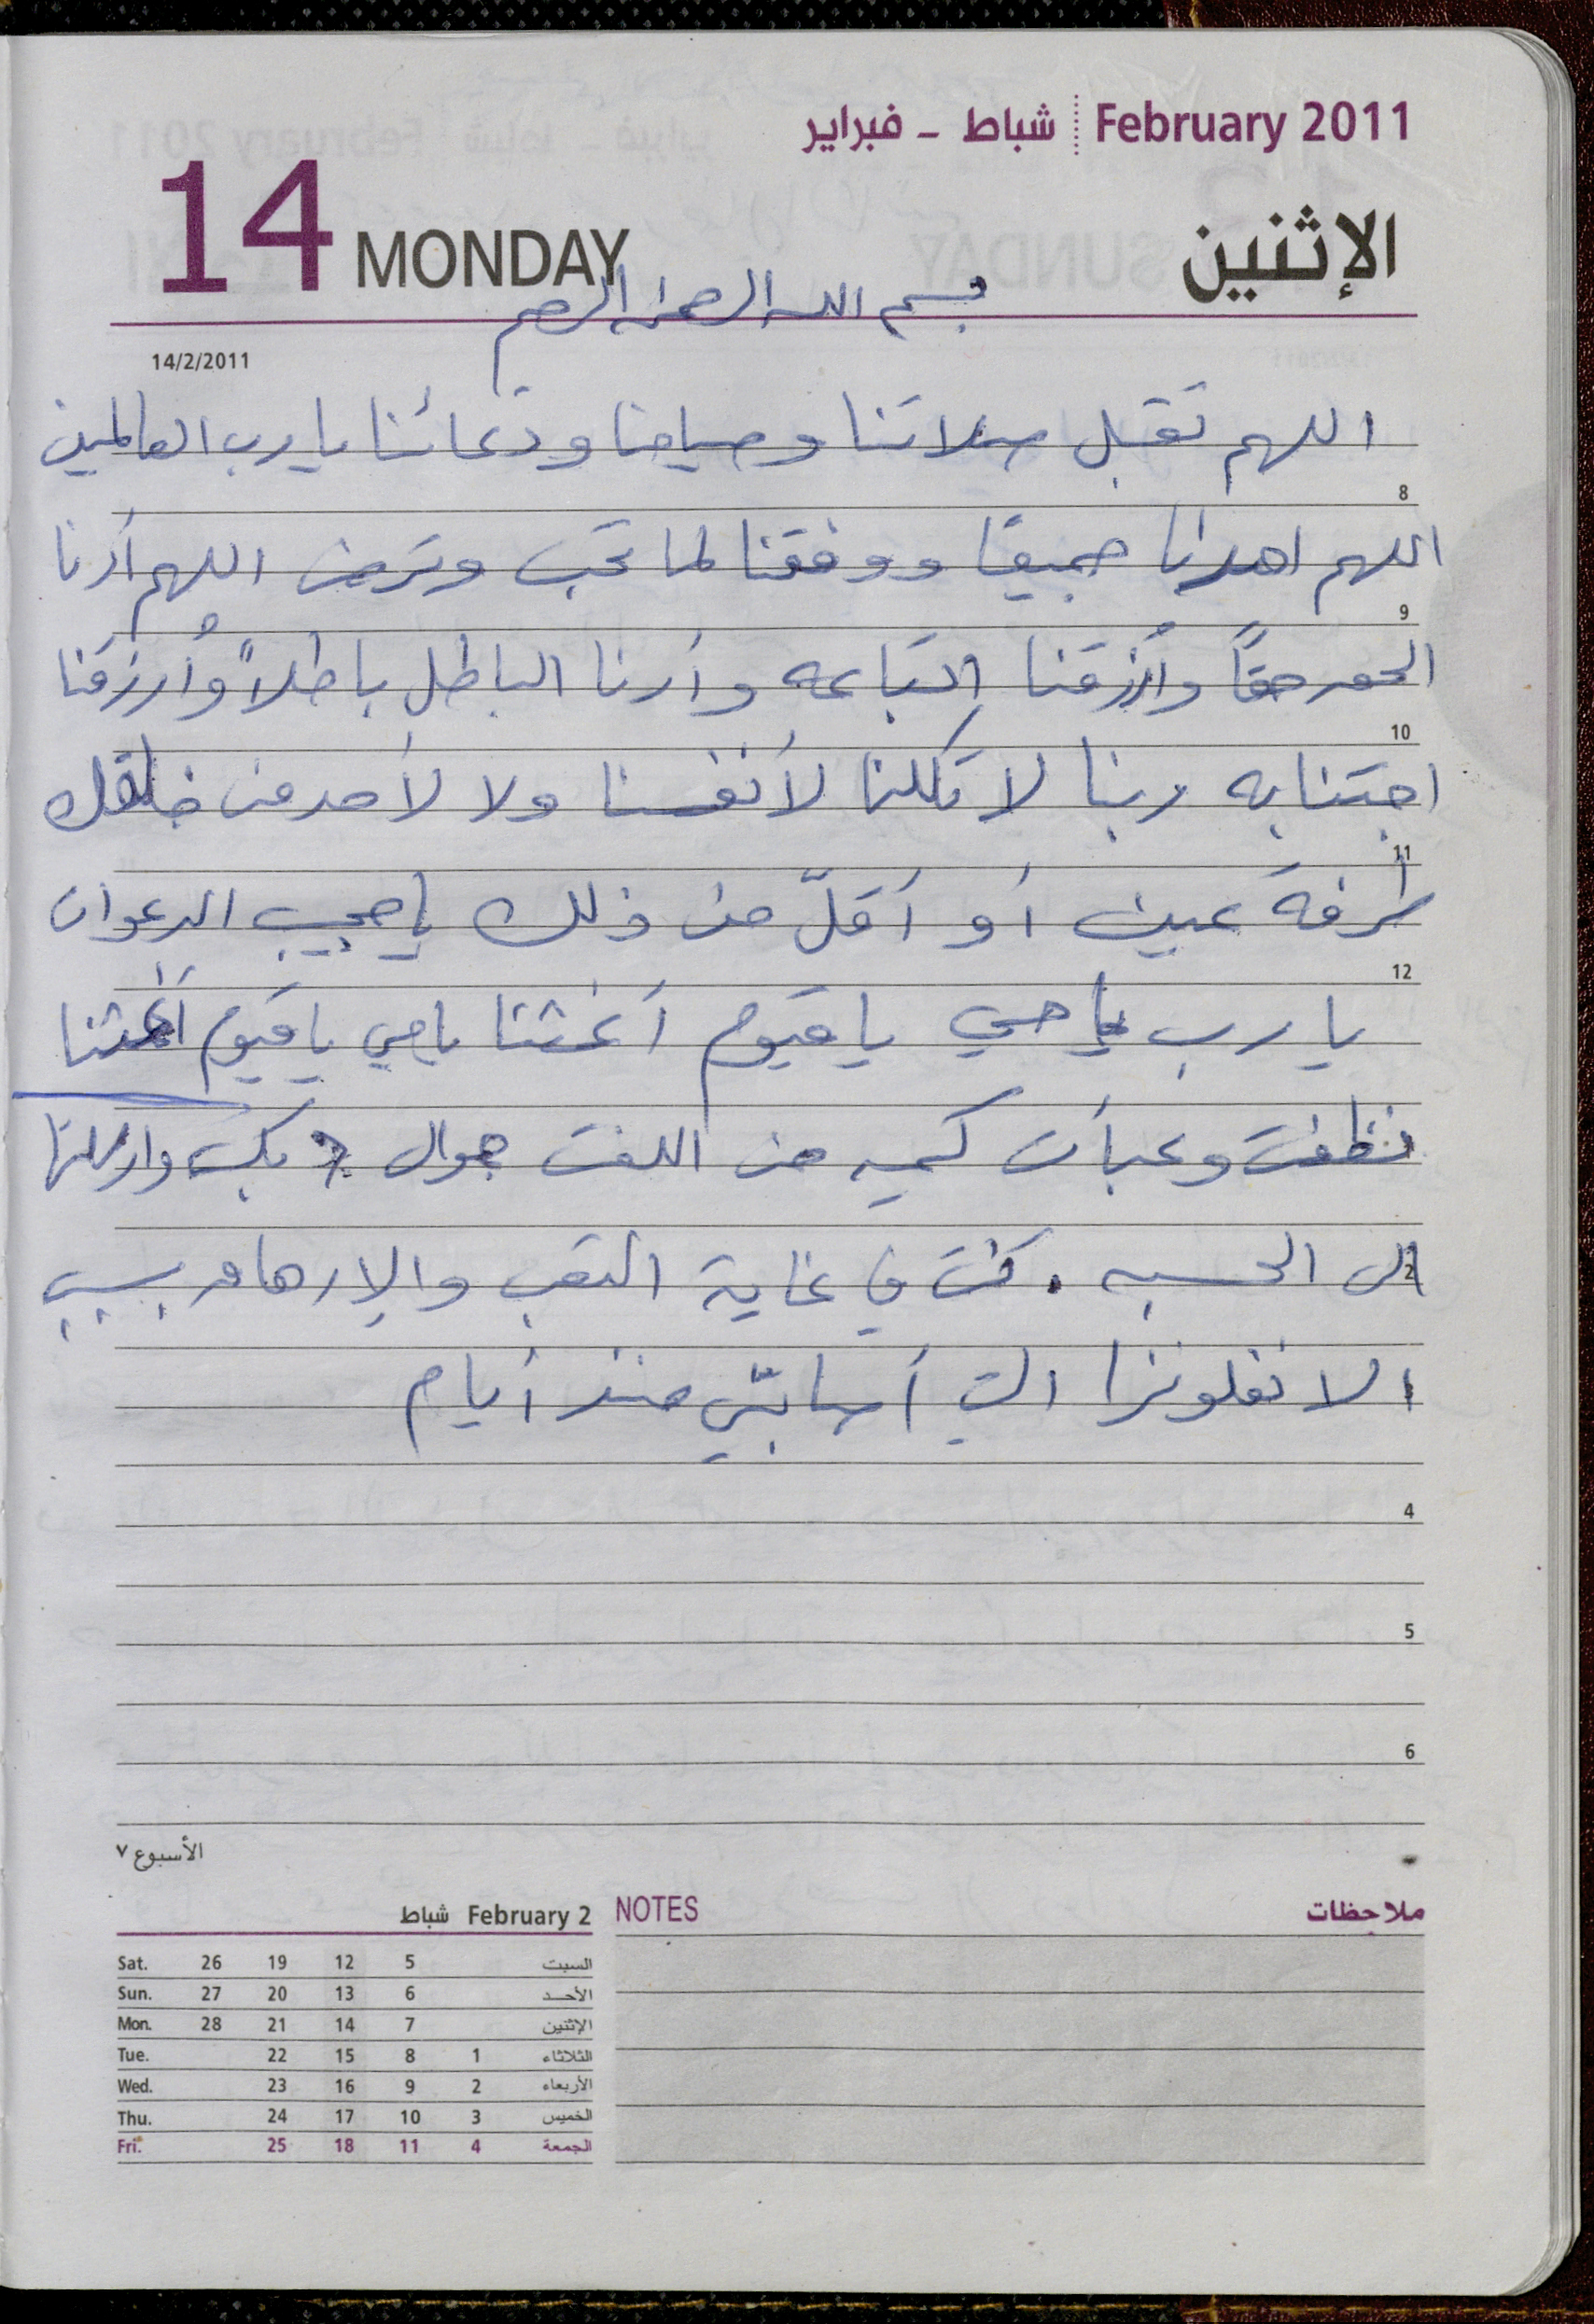 February 2011 شباط - فبراير
14 MONDAY الإثنين
بسم الله الرحمن الرحيم
14/2/2011
اللهم تقبل صلاتنا وصيامنا ودعائنا يا رب العالمين
8
اللهم اهدنا جميعًا ووفقنا لما تحب وترضى اللهم أرنا
9
الحق حقًا وأرزقنا إتباعه وأرنا الباطل باطلاً وأرزقنا
10
اجتنابه ربنا لا تكلنا لأنفسنا ولا لأحد من خلقك
11
طرفة عين أو أقلّ من ذلك يا مجيب الدعوات
12
يا رب يا حي يا قيوم أغثنا يا حي يا قيوم أغثنا
نظفت وعبأت كميه من اللفت جوال بكب وارسلتها
2
الى الحسبه . كنت في غاية التعب والإرهاق بسبب
الانفلونزا التي أصابتني منذ أيام
4
5
6
الأسبوع ٧
February 2 شباط
Sat. 26 19 12 5 السبت
Sun. 27 20 13 6 الأحد
Mon. 28 21 14 7 الإثنين
Tue. 22 15 8 1 الثلاثاء
Wed. 23 16 9 2 الأربعاء
Thu. 24 17 10 3 الخميس
Fri. 25 18 11 4 الجمعة
NOTES ملاحظات